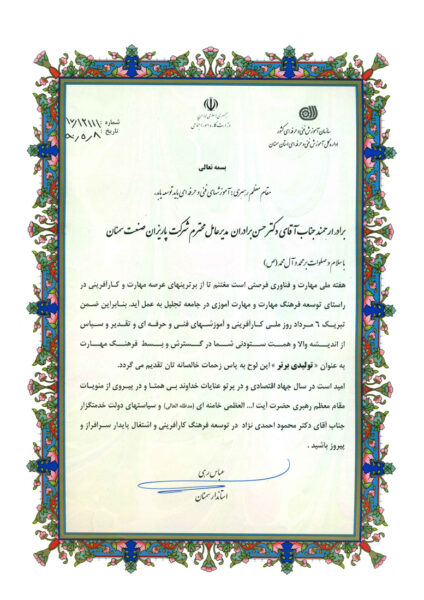 جمهوری اسلامی ایران
سازمان آموزش فنی و حرفه ای کشور
اداره کل آموزش فنی و حرفه ای استان سمنان
شماره :
تاریخ :
بسمه تعالی
مقام معظم رهبری : آموزشهای فنی و حرفه ای باید توسعه یابد.
برادر ارجمند جناب آقای دکتر حسن برادران مدیرعامل محترم شرکت پاریزان صنعت سمنان
با سلام و صلوات بر محمد و آل محمد (ص)
هفته ملی مهارت و فناوری فرصتی است مغتنم تا از برترینهای عرصه مهارت و کارآفرینی در
راستای توسعه فرهنگ مهارت و مهارت آموزی در جامعه تجلیل به عمل آید. بنابراین ضمن
تبریک ٦ مرداد روز ملی کارآفرینی و آموزشهای فنی و حرفه ای و تقدیر و سپاس
از اندیشه والا و همت ستودنی شما در گسترش و بسط فرهنگ مهارت
به عنوان « تولیدی برتر » این لوح به پاس زحمات خالصانه تان تقدیم می گردد.
امید است در سال جهاد اقتصادی و در پرتو عنایات خداوند بی همتا و در پیروی از منویات
مقام معظم رهبری حضرت آیت ا... العظمی خامنه ای (مدظله العالی) و سیاستهای دولت خدمتگزار
جناب آقای دکتر محمود احمدی نژاد در توسعه فرهنگ کارآفرینی و اشتغال پایدار سرافراز و
پیروز باشید .
عباس رهی
استاندار سمنان